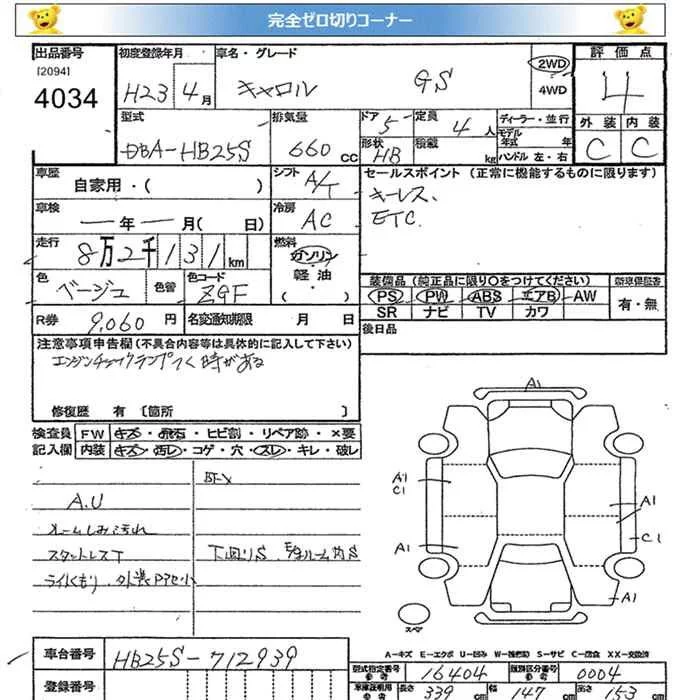 完全ゼロ切りコーナー
出品番号 初度登録年月 車名・グレード 2WD 評価点
[2094] 4034 H23 4月 キャロル GS 4WD 4
型式 排気量 ドア 5 定員 4人 ディーラー・並行 外装 内装
DBA-HB25S 660cc 形状 HB 積載 kg モデル年式 年 ハンドル 左・右 C C
車歴 自家用・( ) シフト A/T セールスポイント (正常に機能するものに限ります)
車検 ― 年 ― 月( 日) 冷房 AC キーレス、
ETC
走行 8万2千131km 燃料 ガソリン
軽油
( )
色 ベージュ 色替 色コード ZGF 装備品 (純正品に限り○をつけてください) 新車保証書
PS PW ABS エアB AW 有・無
SR ナビ TV カワ
R券 9,060円 名変通知期限 月 日 後日品
注意事項申告欄 (不具合内容等は具体的に記入して下さい)
エンジンチェックランプつく時がある
修復歴 有 [箇所 ]
検査員 FW キズ・飛石・ヒビ割・リペア跡・×要
記入欄 内装 キズ・汚レ・コゲ・穴・スレ・キレ・破レ
A.U
ルームしみ汚れ
スタットレスT 下回りS
ライトくもり
A1
A1
C1
A1
A1
C1
A1
スペア
A-キズ E-エクボ U-凹み W-補修跡 S-サビ C-腐食 XX-交換済
車台番号 HB25S-712939 型式指定番号 参考 16404 類別区分番号 参考 0004
登録番号 車庫証明用 参考 長さ 339 cm 幅 147 cm 高さ 153 cm